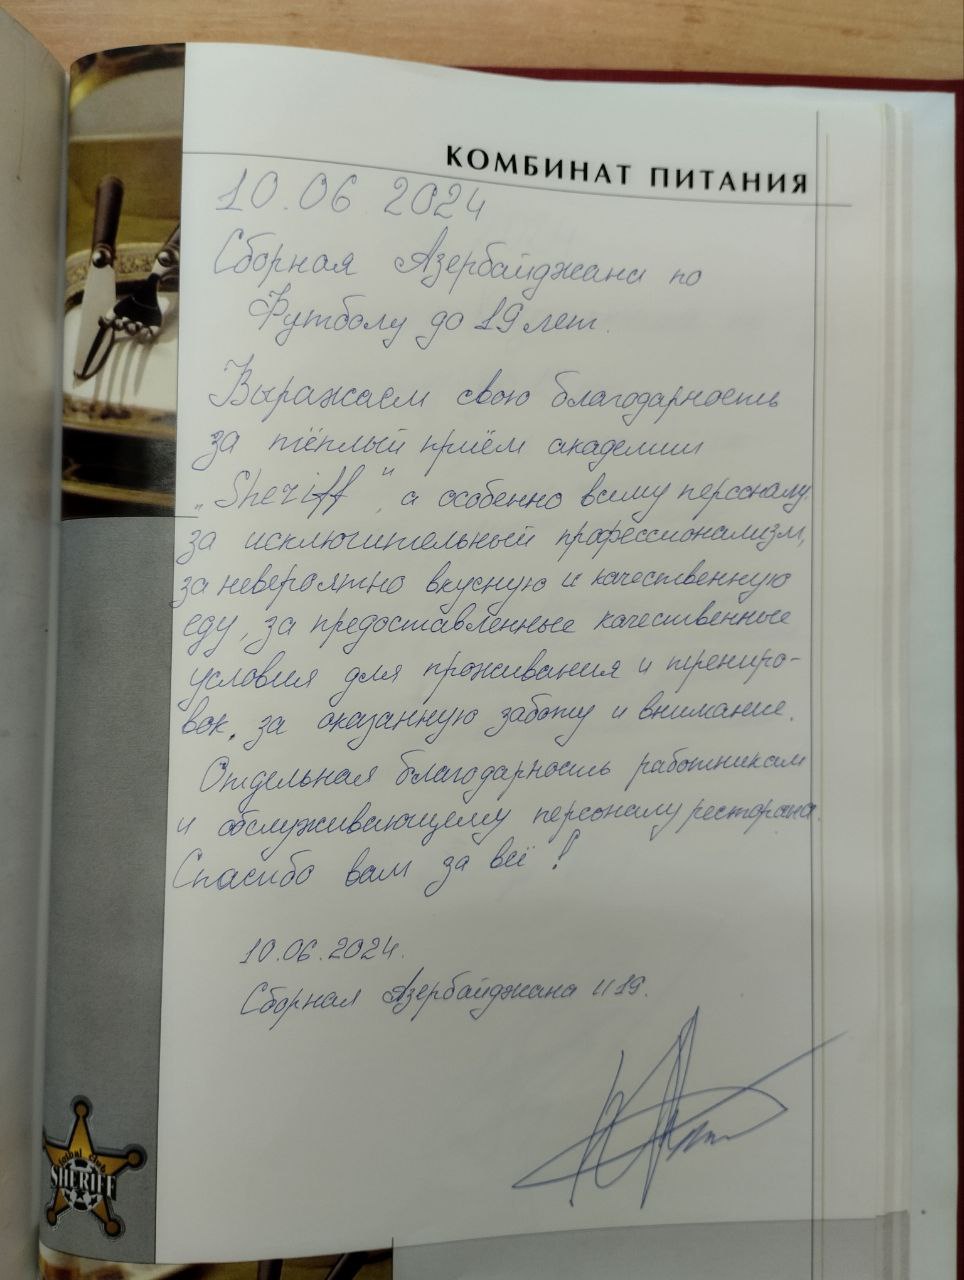 КОМБИНАТ ПИТАНИЯ
10.06.2024
Сборная Азербайджана по
Футболу до 19 лет.
Выражаем свою благодарность
за тёплый приём академии
„Sheriff", а особенно всему персоналу
за исключительный профессионализм,
за невероятно вкусную и качественную
еду, за предоставленные качественные
условия для проживания и трениро-
вок, за оказанную заботу и внимание.
Отдельная благодарность работникам
и обслуживающему персоналу ресторана.
Спасибо вам за всё!
10.06.2024.
Сборная Азербайджана U19.
Fotbal Club
SHERIFF